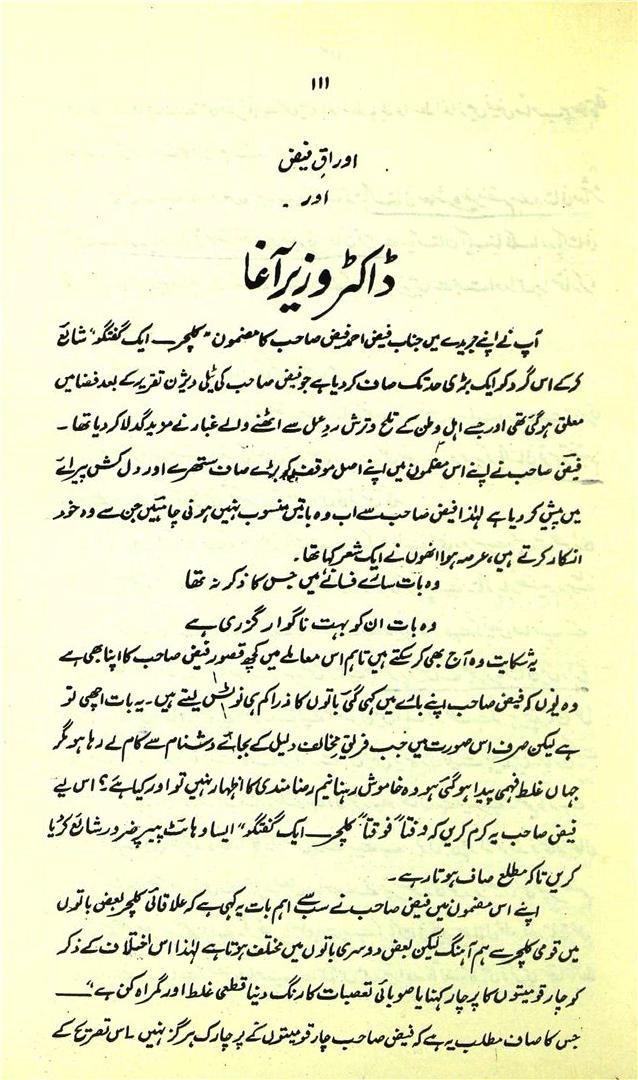 ۱۱۱
اوراقِ فیض
اور
ڈاکٹر وزیر آغا
آپ نے اپنے جریدے میں جناب فیض احمد فیض صاحب کا مضمون "کلچر ــ ایک گفتگو" شائع
کرکے اس گرد کو ایک بڑی حد تک صاف کر دیا ہے جو فیض صاحب کی ٹیلی ویژن تقریر کے بعد فضا میں
معلق ہوگئی تھی اور جسے اہل وطن کے تلخ و ترش ردِ عمل سے اٹھنے والے غبار نے مزید گدلا کر دیا تھا ۔
فیض صاحب نے اپنے اس مضمون میں اپنے اصل موقف کو بڑے صاف ستھرے اور دل کش پیرائے
میں پیش کر دیا ہے لہٰذا فیض صاحب سے اب وہ باتیں منسوب نہیں ہونی چاہئیں جن سے وہ خود
انکار کرتے ہیں، عرصہ ہوا انھوں نے ایک شعر کہا تھا ۔
وہ بات سارے فسانے میں جس کا ذکر نہ تھا
وہ بات ان کو بہت ناگوار گزری ہے
یہ شکایت وہ آج بھی کر سکتے ہیں تاہم اس معاملے میں کچھ قصور فیض صاحب کا اپنا بھی ہے
وہ یوں کہ فیض صاحب اپنے بارے میں کہی گئی باتوں کا ذرا کم ہی نوٹس لیتے ہیں ۔ یہ بات اچھی تو
ہے لیکن صرف اس صورت میں جب فریقِ مخالف دلیل کے بجائے دشنام سے کام لے رہا ہو مگر
جہاں غلط فہمی پیدا ہو گئی ہو وہ خاموش رہنا نیم رضامندی کا اظہار نہیں تو اور کیا ہے؟ اس لیے
فیض صاحب یہ کرم کریں کہ وقتاً فوقتاً "کلچر ــ ایک گفتگو" ایسا وہائٹ پیپر ضرور شائع کر دیا
کریں تاکہ مطلع صاف ہوتا رہے ۔
اپنے اس مضمون میں فیض صاحب نے سب سے اہم بات یہ کہی ہے کہ علاقائی کلچر بعض باتوں
میں قومی کلچر سے ہم آہنگ لیکن بعض دوسری باتوں میں مختلف ہوتا ہے لہٰذا اس اختلاف کے ذکر
کو چار قومیتوں کا پرچار کہنا یا صوبائی تعصبات کا رنگ دینا قطعی غلط اور گمراہ کن ہے" ــــ
جس کا صاف مطلب یہ ہے کہ فیض صاحب چار قومیتوں کے پرچارک ہرگز نہیں ۔ اس تصریح کے